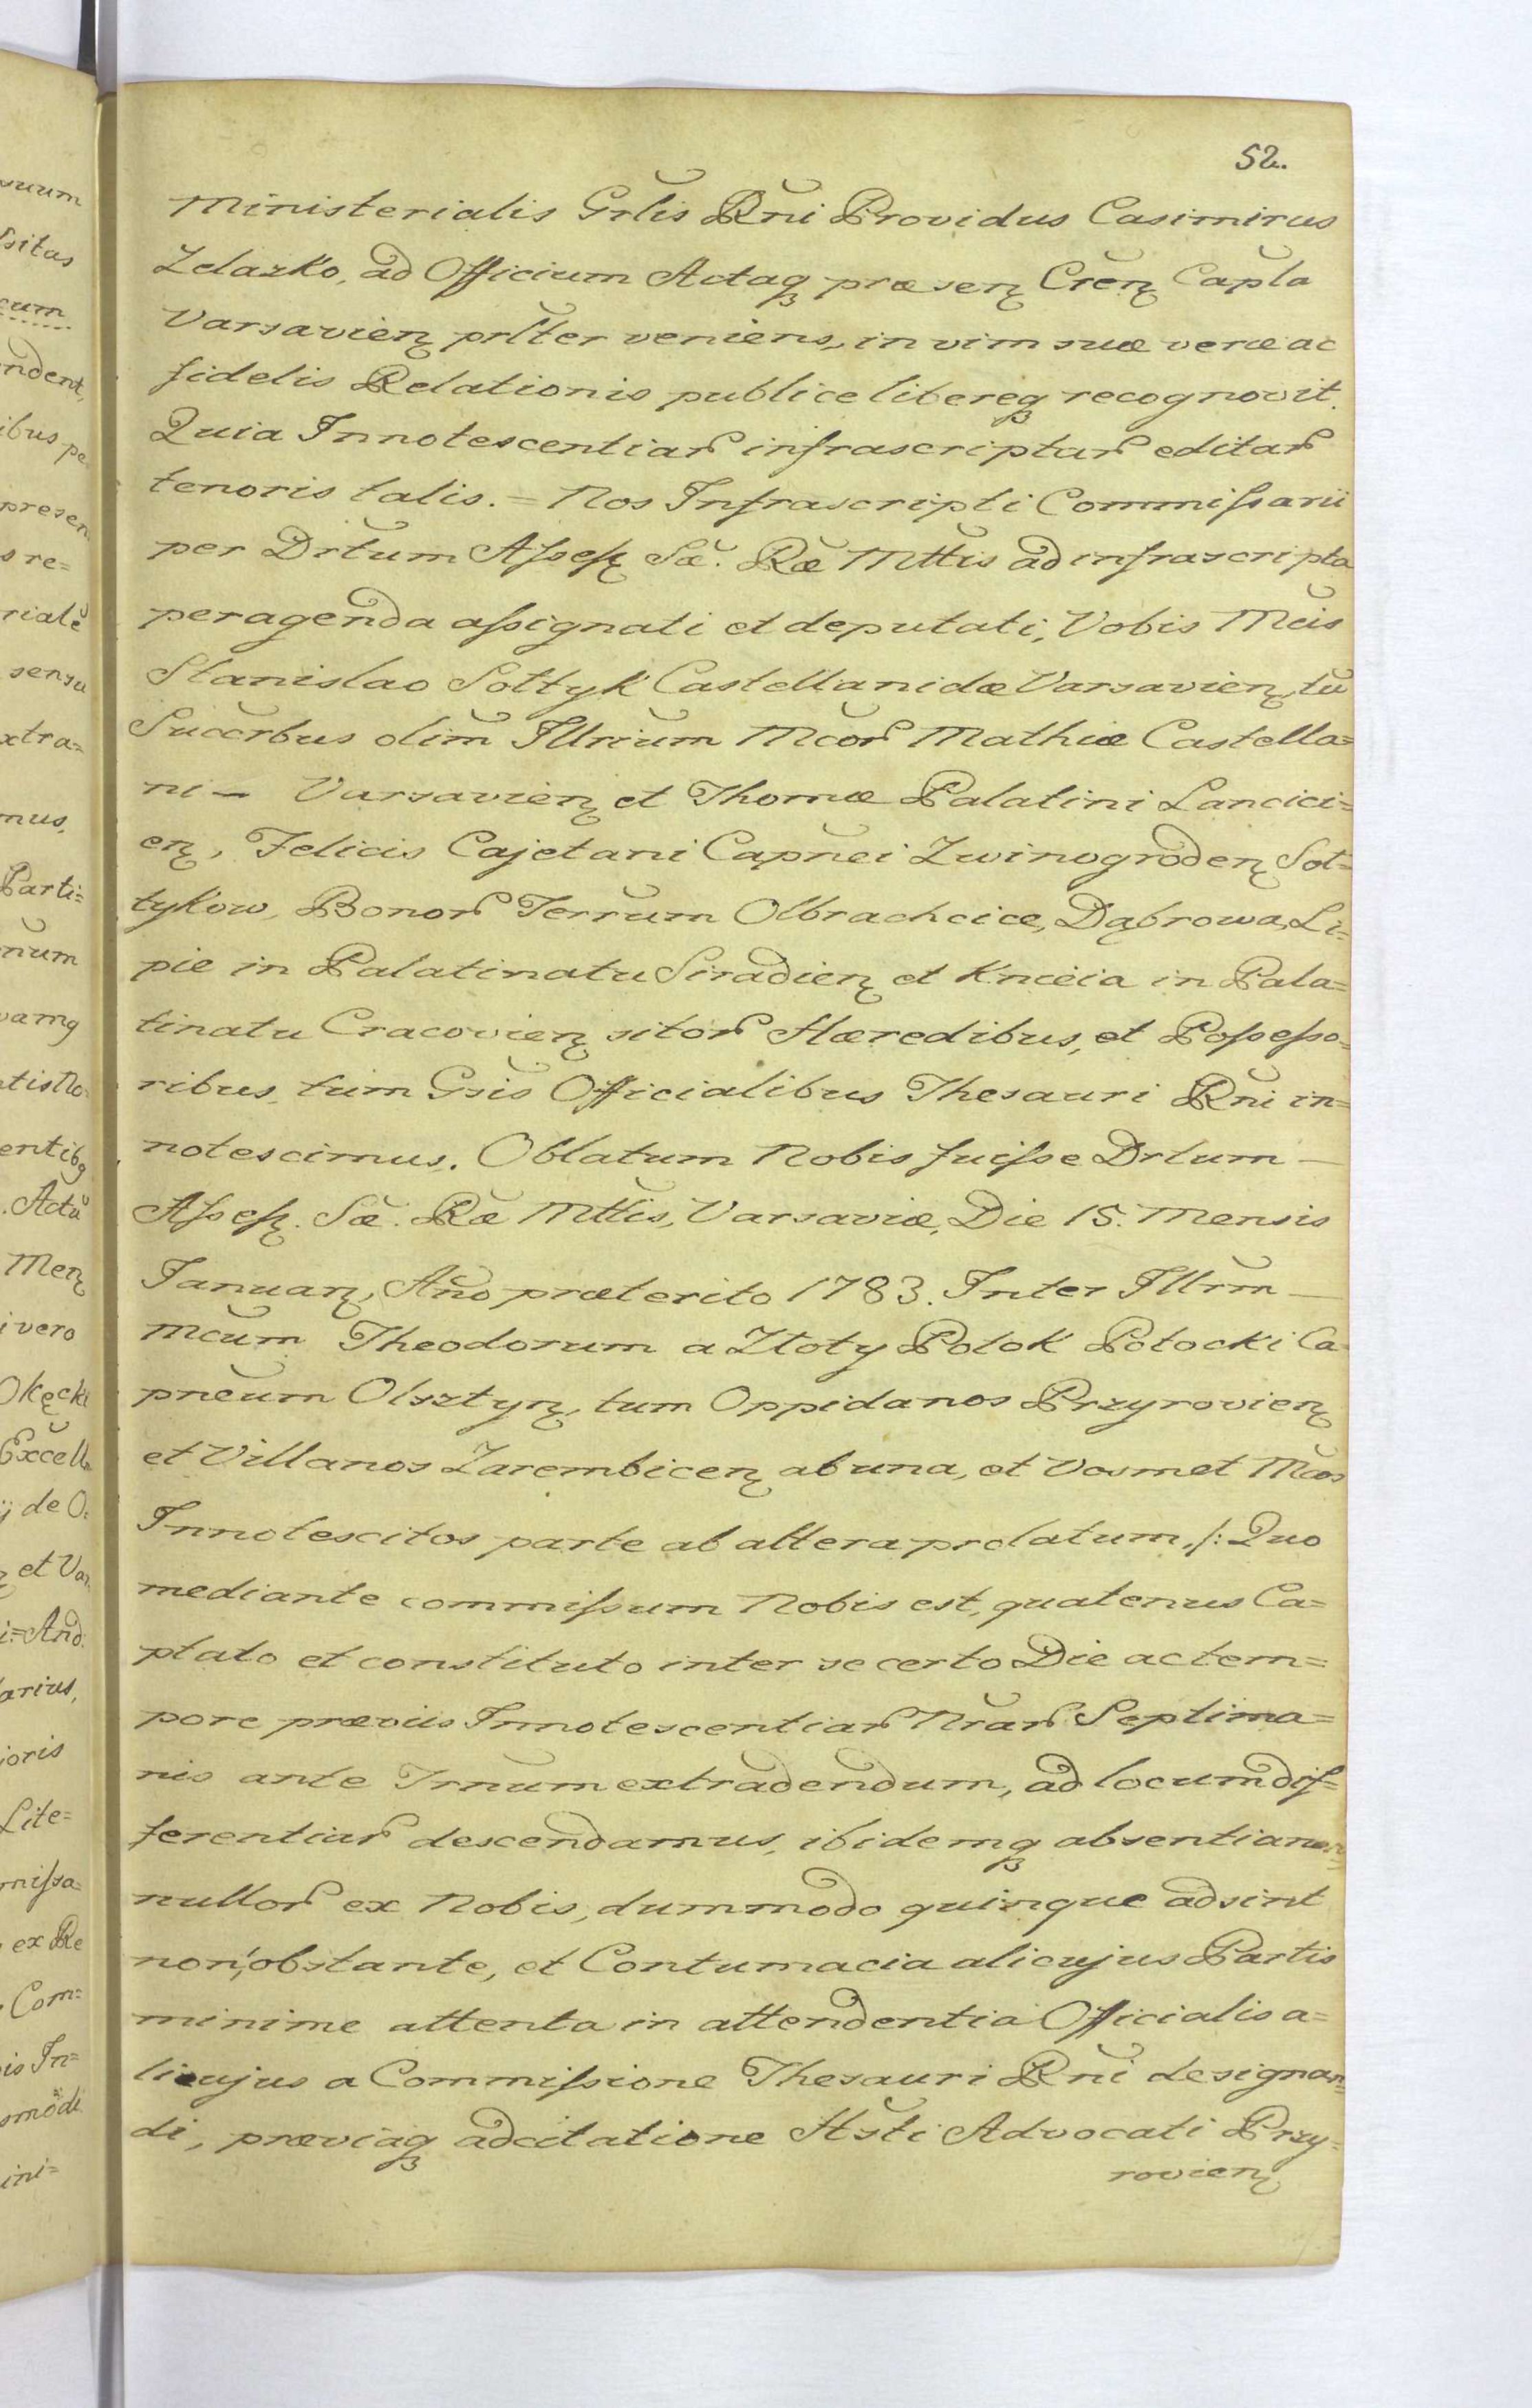 52.
Ministerialis Grl̃is Rñi Providus Casimirus
Zelazko, ad Officium Actaq̃ præsen̨ Cren̨ Capl̃a
Varsavien̨ prl̃ter veniens, in vim suæ veræ ac
fidelis Relationis publice libereq̃ recognovit.
Quia Innotescentiar̃ infrascriptar̃ editar̃
tenoris talis. = Nos Infrascripti Commissarii
per Drtum Assess̨ Sæ̃. Ræ̃ Mttis ad infrascripta
peragenda assignati et deputati, Vobis Mcis
Stanislao Sołtyk Castellanidæ Varsavien̨, tũ
Succrbus olim̃ Illrium Mcor̃ Mathiæ Castella=
ni — Varsavien̨ et Thomæ Palatini Lancici=
en̨, Felicis Cajetani Capñei Zwinogroden̨ Soł=
tykow, Bonor̃ Terrum Olbrachcice, Dąbrowa, Li=
pie in Palatinatu Siradien̨ et Knieia in Pala=
tinatu Cracovien̨ sitor̃ Hæredibus, et Possesso=
ribus, tum Gsis Officialibus Thesauri Rñi in=
notescimus. Oblatum Nobis fuisse Drtum —
Assess̨. Sæ̃. Ræ̃ Mttis, Varsaviæ, Die 15. Mensis
Januar̨, Añõ præterito 1783. Inter Illrm̃ —
Mcũm Theodorum a Złoty Potok Potocki Ca=
pneũm Olsztyn̨, tum Oppidanos Przyrovien̨
et Villanos Zarembicen̨ ab una, et Vosmet Mcos
Innotescitos parte ab altera prolatum, /: Quo
mediante commissum Nobis est, quatenus Ca=
ptato et constituto inter se certo Die ac tem=
pore præviis Innotescentiar̃ Nrar̃ Septima=
nis ante Trnum̃ extradendum, ad locum dif=
ferentiar̃ descendamus, ibidemq̃ absentia non=
nullor̃ ex Nobis, dummodo quinque adsint
non, obstante, et Contumacia alicujus Partis
minime attenta in attendentia Officialis a=
licujus a Commissione Thesauri Rñi designan=
di, præviaq̃ adcitatione Hsti Advocati Przy=
rovien̨